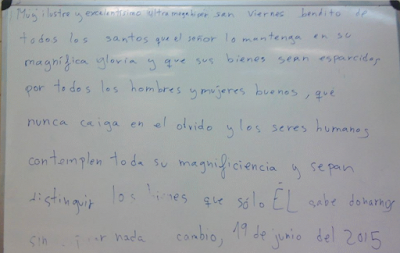 Muy ilustre y excelentísimo ultramegabien san viernes bendito de
todos los santos que el señor lo mantenga en su
magnífica gloria y que sus bienes sean esparcidos
por todos los hombres y mujeres buenos, que
nunca caiga en el olvido y los seres humanos
contemplen toda su magnificiencia y sepan
distinguir los que sólo ÉL sabe donarnos
sin nada cambio, 19 de junio del 2015